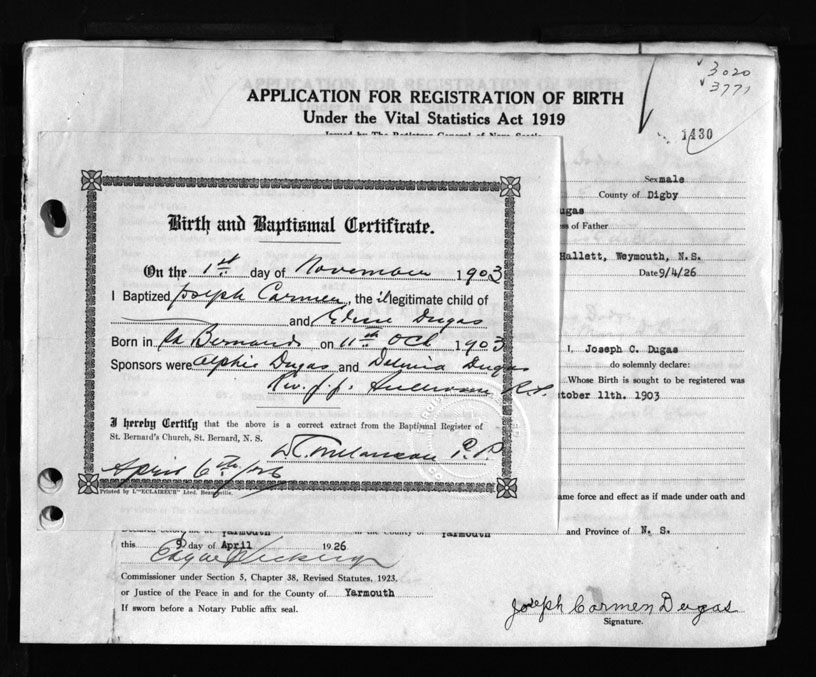 3020
3771
APPLICATION FOR REGISTRATION OF BIRTH
Under the Vital Statistics Act 1919
Issued by The Registrar General of Nova Scotia
1430
Sex male
County of Digby
ugas
ss of Father
Hallett, Weymouth, N.S.
Date 9/4/26
I, Joseph C. Dugas
do solemnly declare:
Whose Birth is sought to be registered was
tober 11th. 1903
ame force and effect as if made under oath and
and Province of N. S.
Birth and Baptismal Certificate.
On the 1st day of November 1903
I Baptized Joseph Carmen, the illegitimate child of
and Edna Dugas
Born in St Bernards on 11th Oct 1903
Sponsors were Alphie Dugas and Delmia Dugas
Rev. J. J. Sullivan
I hereby Certify that the above is a correct extract from the Baptismal Register of
St. Bernard's Church, St. Bernard, N. S.
Melanson P.P.
April 6th/26
Printed by L'"ECLAIREUR" Lted. Beauceville.
Declared before me at Yarmouth in the County of Yarmouth
this 9 day of April 1926
Commissioner under Section 5, Chapter 38, Revised Statutes, 1923,
or Justice of the Peace in and for the County of Yarmouth
If sworn before a Notary Public affix seal.
Joseph Carmen Dugas
Signature.